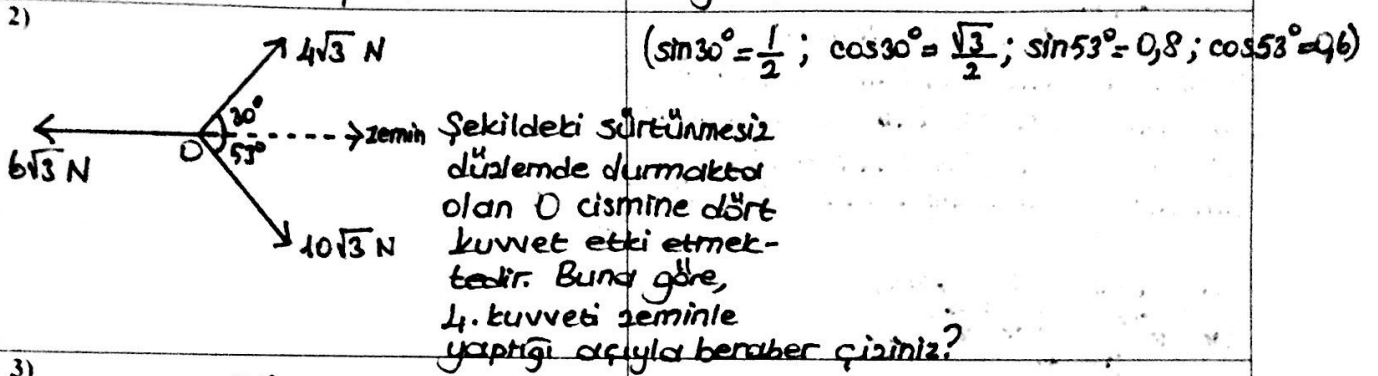 2)
4√3 N
(sin30°=1/2 ; cos30°=√3/2 ; sin53°=0,8 ; cos53°=0,6)
30°
zemin
O
53°
6√3 N
10√3 N
Şekildeki sürtünmesiz
düzlemde durmakta
olan O cismine dört
kuvvet etki etmek-
tedir. Buna göre,
4. kuvveti zeminle
yaptığı açıyla beraber çiziniz?
3)